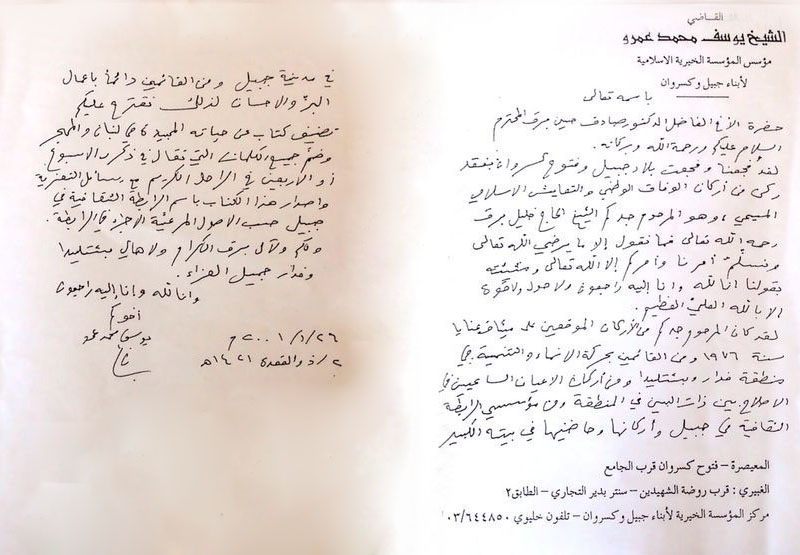 القاضي
الشيخ يوسف محمد عمرو
مؤسس المؤسسة الخيرية الاسلامية
لأبناء جبيل وكسروان
باسمه تعالى
حضرة الأخ الفاضل الدكتور صادق حسين برق المحترم
السلام عليكم ورحمة الله وبركاته.
لقد فجعنا وفجعت بلاد جبيل وفتوح كسروان بفقد
ركن من أركان الوفاق الوطني والتعايش الاسلامي
المسيحي، وهو المرحوم جدكم الشيخ الحاج خليل برق
رحمه الله تعالى فما نقول إلا ما يرضي الله تعالى
ونسلم أمرنا وأمركم إلا الله تعالى ومشيئته
بقولنا انا لله وانا إليه راجعون ولا حول ولا قوة
الا بالله العلي العظيم.
لقد كان المرحوم جدكم من الأركان الموقعين على ميثاق عنايا
سنة ١٩٧٦ ومن القائمين بحركة الإنماء والتنمية في
منطقة فدار وبشتليدا ومن أركان الاعيان الساعيين في
الاصلاح بين ذات البين في المنطقة ومن مؤسسي الرابطة
الثقافية في جبيل وأركانها وحاضنيها في بيته الكبير
المعيصرة – فتوح كسروان قرب الجامع
الغبيري : قرب روضة الشهيدين – سنتر بدير التجاري – الطابق ٢
مركز المؤسسة الخيرية لأبناء جبيل وكسروان – تلفون خليوي ٠٣/٦٤٤٨٥٠
في مدينة جبيل ومن القائمين دائماً باعمال
البر والاحسان لذلك نقترح عليكم
تصنيف كتاب عن حياته المجيدة في لبنان والمهجر
وضم جميع الكلمات التي تقال في ذكرى الاسبوع
أو الاربعين في الراحل الكريم مع رسائل التعزية
واصدار هذا الكتاب باسم الرابطة الثقافية في
جبيل حسب الاصول المرعية الاجراء في الرابطة.
ولكم ولآل برق الكرام ولاهالي بشتليدا
وفدار جبيل العزاء.
وانا لله وانا إليه راجعون
أخوكم
يوسف محمد عمرو
٢٦/١/٢٠٠١م
٢/ذو القعدة ١٤٢١هـ